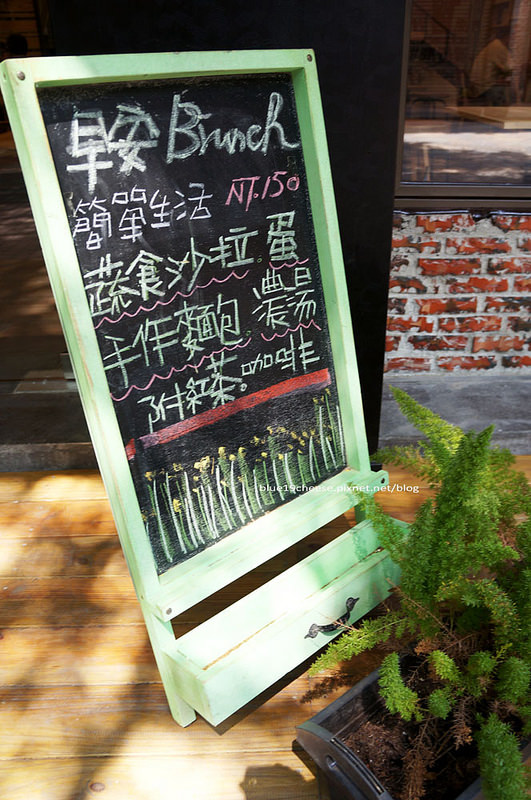 早安 Brunch
簡單生活 NT.150
蔬食沙拉.蛋
手作麵包.濃湯
附紅茶.咖啡
blue19cheese.pixnet.net/blog